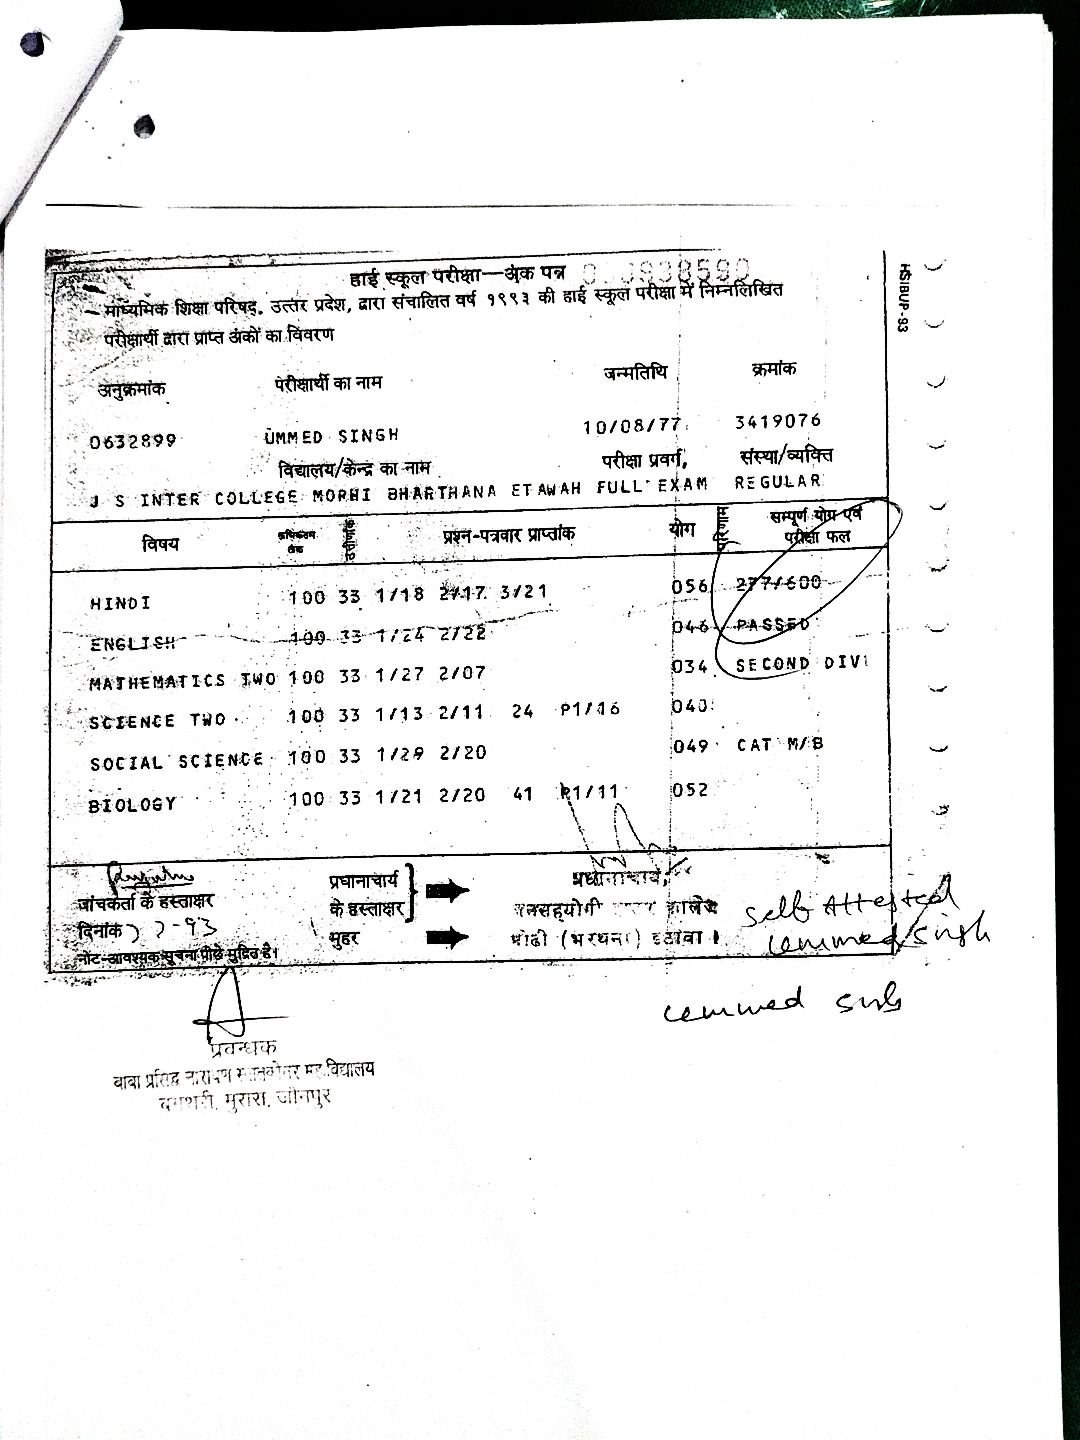 हाई स्कूल परीक्षा—अंक पत्र
माध्यमिक शिक्षा परिषद्, उत्तर प्रदेश, द्वारा संचालित वर्ष १९९३ की हाई स्कूल परीक्षा में निम्नलिखित
परीक्षार्थी द्वारा प्राप्त अंकों का विवरण
HSIBUP-93
अनुक्रमांक परीक्षार्थी का नाम जन्मतिथि क्रमांक
0632899 UMMED SINGH 10/08/77 3419076
विद्यालय/केन्द्र का नाम परीक्षा प्रवर्ग, संस्था/व्यक्ति
J S INTER COLLEGE MORHI BHARTHANA ETAWAH FULL EXAM REGULAR
विषय अधिकतम अंक उत्तीर्णांक प्रश्न-पत्रवार प्राप्तांक योग परिणाम सम्पूर्ण योग एवं परीक्षा फल
HINDI 100 33 1/18 2/17 3/21 056 277/600
ENGLISH 100 33 1/24 2/22 046 PASSED
MATHEMATICS TWO 100 33 1/27 2/07 034 SECOND DIVI
SCIENCE TWO 100 33 1/13 2/11 24 P1/16 040
SOCIAL SCIENCE 100 33 1/29 2/20 049 CAT M/B
BIOLOGY 100 33 1/21 2/20 41 P1/11 052
जांचकर्ता के हस्ताक्षर
दिनांक 7-93
नोट-आवश्यक सूचना पीछे मुद्रित है।
प्रधानाचार्य
के हस्ताक्षर
मुहर
प्रधानाचार्य,
जनसहयोगी कालेज
मोढी (भरथना) इटावा।
Self Attested
Ummed Singh
Ummed Singh
प्रबन्धक
बाबा प्रसिद्ध नारायण महाविद्यालय
जौनपुर